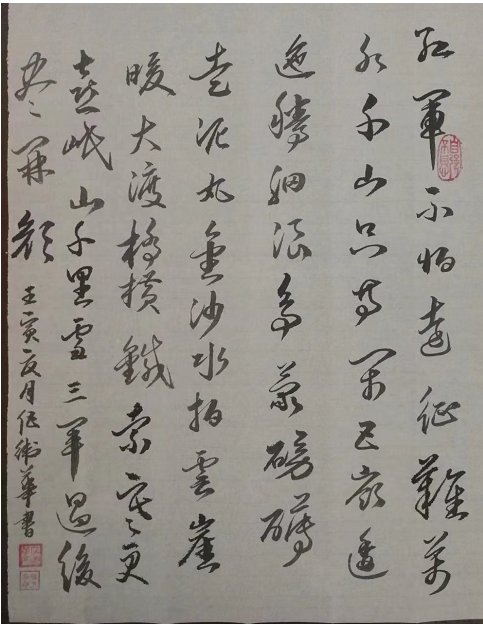 紅軍不怕遠征難萬
水千山只等閒五嶺逶
迤騰細浪烏蒙磅礴
走泥丸金沙水拍雲崖
暖大渡橋横鐵索寒更
喜岷山千里雪三軍過後
盡開顏 壬寅夏月任衛華書